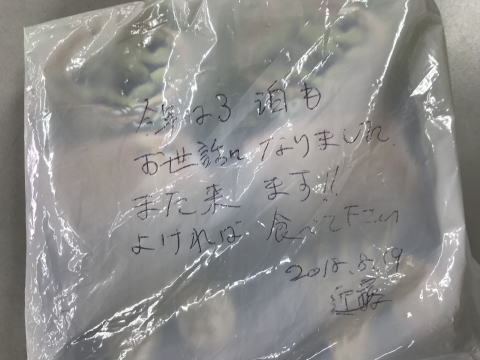 今年は3泊も
お世話になりました
また来ます!!
よければ食べて下さい
2018.8.19
近藤